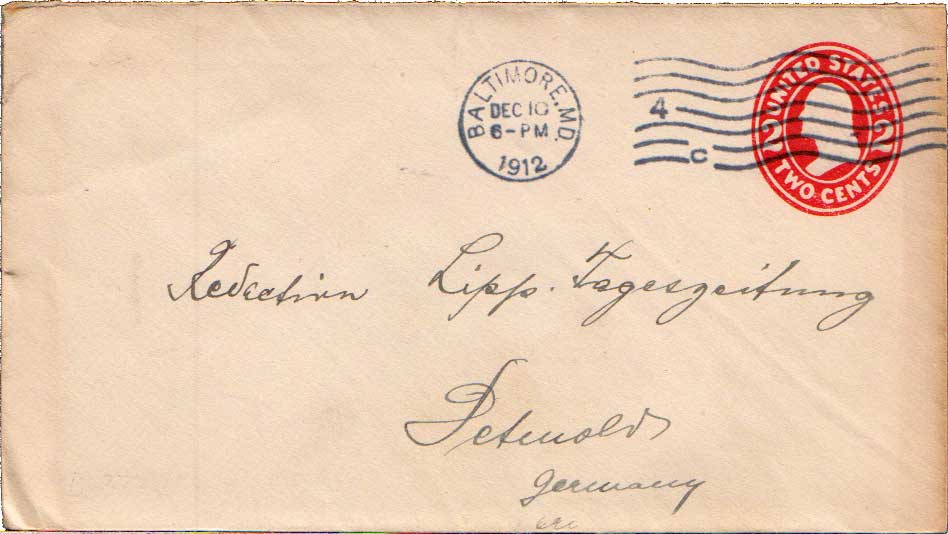 BALTIMORE, MD.
DEC 10
6-PM
1912
4
C
UNITED STATES
2 2
TWO CENTS
Redaction Lipp. Tageszeitung
Detmold
Germany